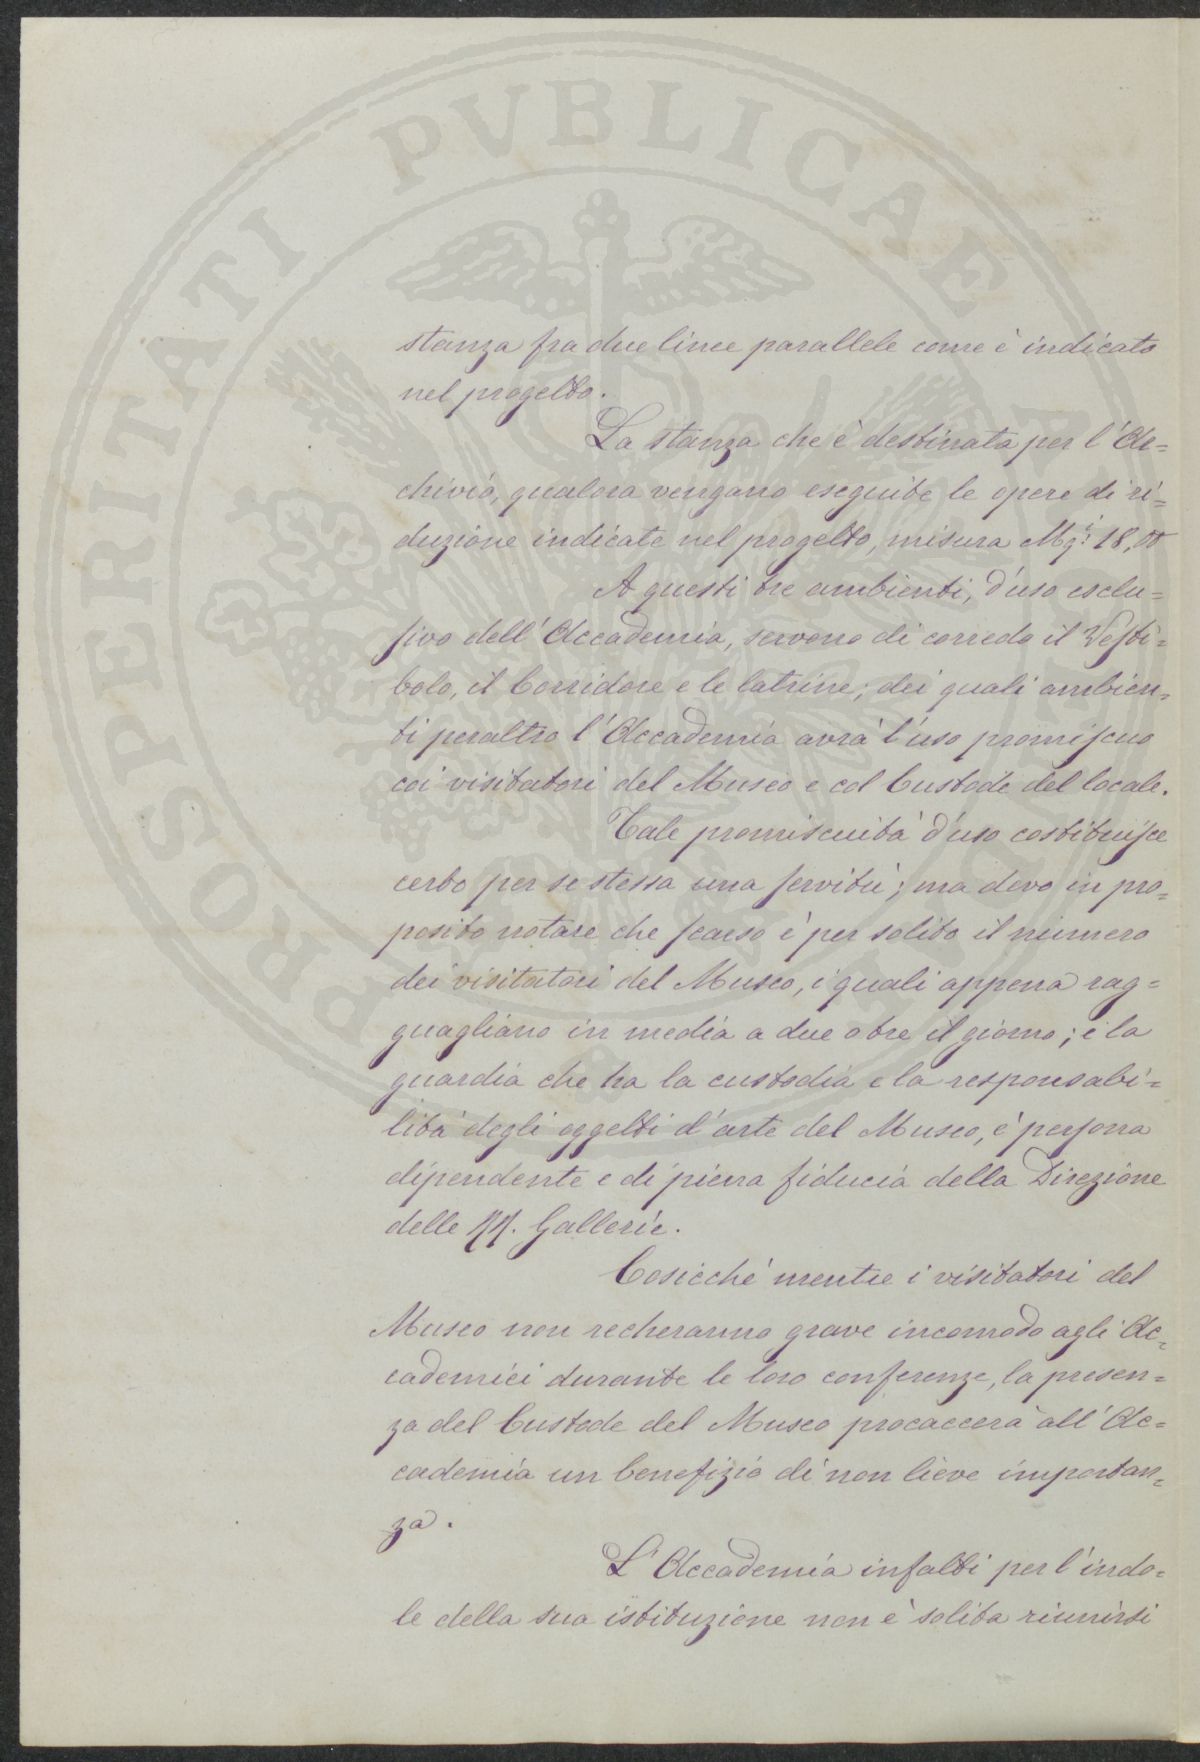 stanza fra due linee parallele come è indicato
nel progetto.
La stanza che è destinata per l'Ar=
chivio, qualora vengano eseguite le opere di ri=
duzione indicate nel progetto, misura Mq.i 18,00
A questi tre ambienti, d'uso esclu=
sivo dell'Accademia, servono di corredo il Vesti=
bolo, il Corridore e le latrine; dei quali ambien=
ti peraltro l'Accademia avrà l'uso promiscuo
coi visitatori del Museo e col Custode del locale.
Tale promiscuità d'uso costituisce
certo per se stessa una servitù; ma devo in pro=
posito notare che scarso è per solito il numero
dei visitatori del Museo, i quali appena rag=
guagliano in media a due o tre il giorno; e la
guardia che ha la custodia e la responsabi=
lità degli oggetti d'arte del Museo, è persona
dipendente e di piena fiducia della Direzione
delle RR. Gallerie.
Cosicchè mentre i visitatori del
Museo non recheranno grave incomodo agli Ac=
cademici durante le loro conferenze, la presen=
za del Custode del Museo procaccerà all'Ac=
cademia un benefizio di non lieve importan=
za.
L'Accademia infatti per l'indo=
le della sua istituzione non è solita riunirsi
PROSPERITATI PVBLICAE